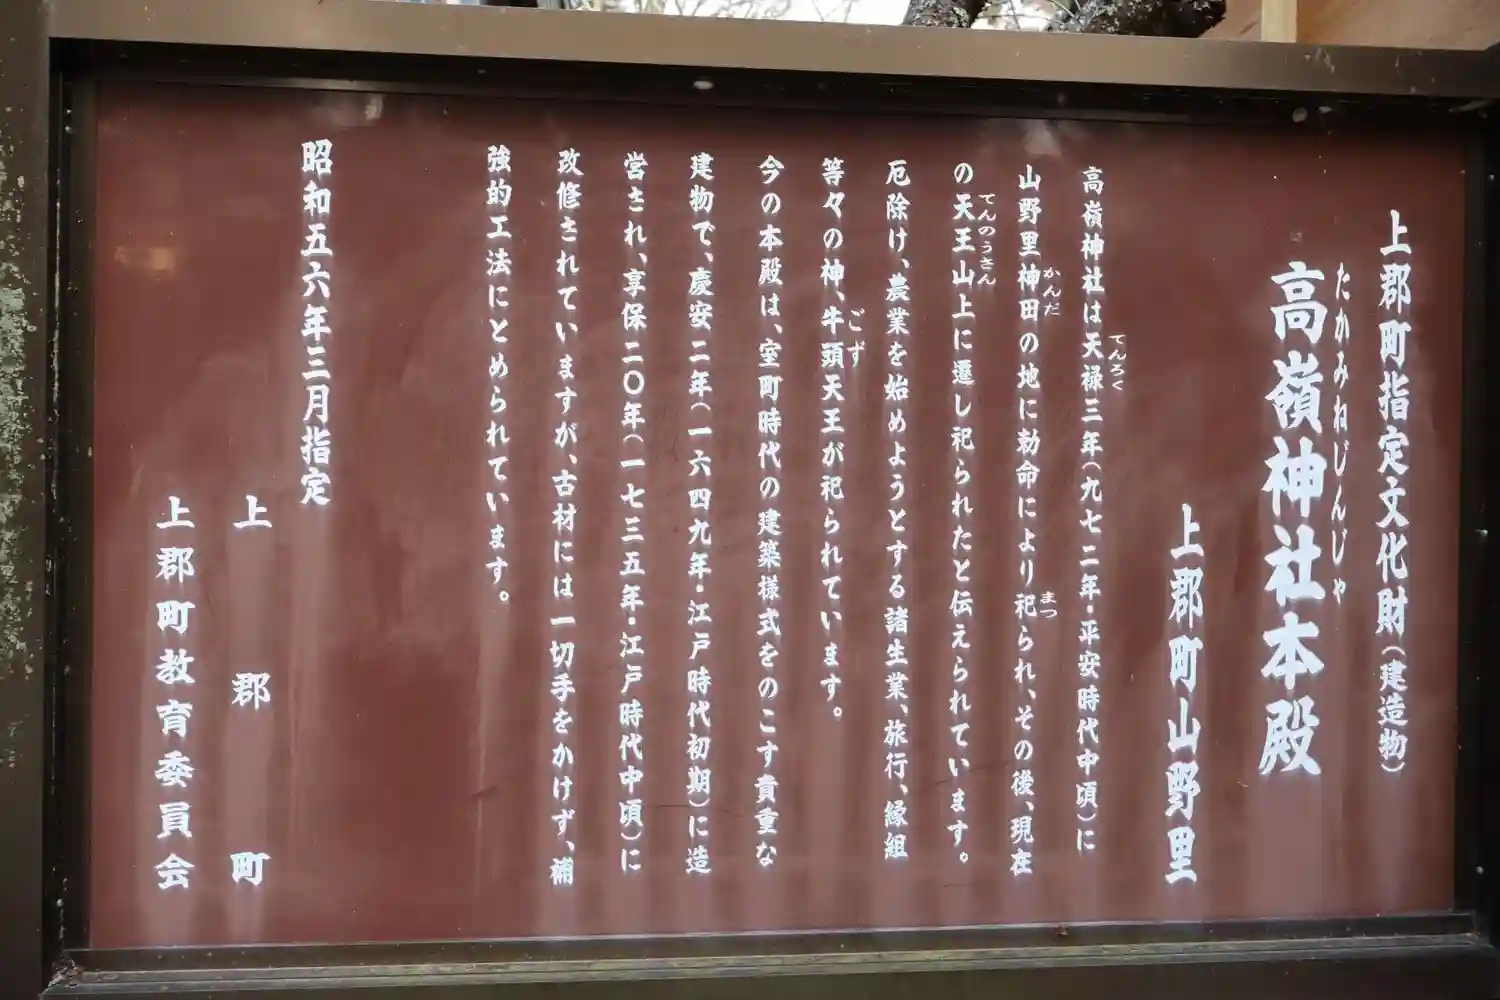 上郡町指定文化財(建造物)
たかみねじんじゃ
高嶺神社本殿
上郡町山野里
てんろく
高嶺神社は天禄三年(九七二年・平安時代中頃)に
かんだ まつ
山野里神田の地に勅命により祀られ、その後、現在
てんのうさん
の天王山上に遷し祀られたと伝えられています。
厄除け、農業を始めようとする諸生業、旅行、縁組
ごず
等々の神、牛頭天王が祀られています。
今の本殿は、室町時代の建築様式をのこす貴重な
建物で、慶安二年(一六四九年・江戸時代初期)に造
営され、享保二〇年(一七三五年・江戸時代中頃)に
改修されていますが、古材には一切手をかけず、補
強的工法にとめられています。
昭和五六年三月指定
上郡町
上郡町教育委員会